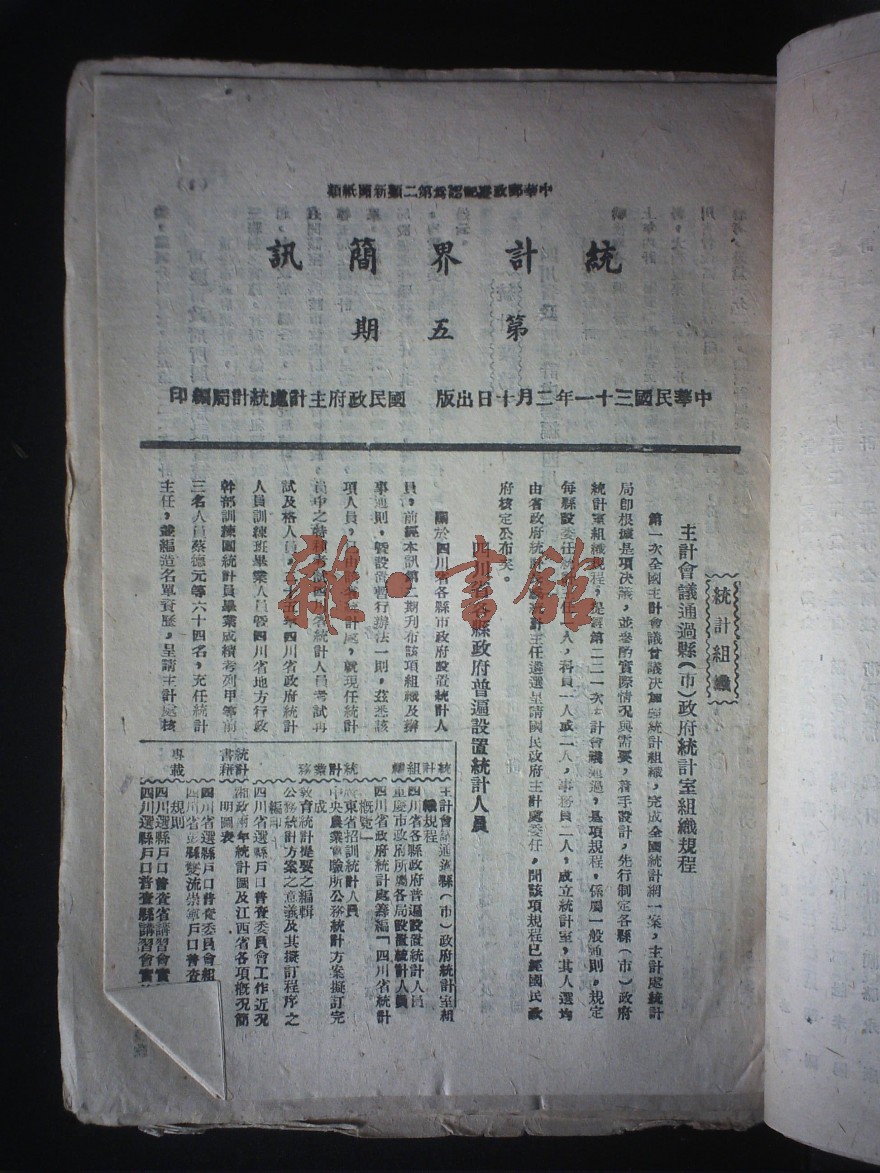 中華郵政登記認為第二類新聞紙類
統計界簡訊
第五期
中華民國三十一年二月十日出版 國民政府主計處統計局編印
統計組織
主計會議通過縣(市)政府統計室組織規程
第一次全國主計會議曾議決加強統計組織,完成全國統計網一案,主計處統計
局即根據是項決議,並參酌實際情況與需要,着手設計,先行制定各縣(市)政府
統計室組織規程,提經第二二一次主計會議通過,是項規程,係屬一般通則,規定
每縣設委任統計主任一人,科員一人或二人,事務員二人,成立統計室,其人選均
由省政府統計長或統計主任遴選呈請國民政府主計處委任,聞該項規程已經國民政
府核定公布矣。
四川省各縣政府普遍設置統計人員
關於四川省各縣市政府設置統計人
員,前經本訊第二期刊布該項組織及辦
事通則,暨設置暫行辦法一則,茲悉該
項人員,已由省統計處,就現任統計
員中之特種考試四川省統計人員考試再
試及格人員,二十五年四川省政府統計
人員訓練班畢業人員暨四川省地方行政
幹部訓練團統計員畢業成績考列甲等前
三名人員蔡德元等六十四名,充任統計
主任,並編造名單資歷,呈請主計處核
統計組織
主計會議通過縣(市)政府統計室組
織規程
四川省各縣政府普遍設置統計人員
重慶市政府所屬各局設置統計人員
四川省政府統計處籌編「四川省統計
概覽」
統計業務
廣東省招訓統計人員
中央農業實驗所公務統計方案擬訂完
成
教育統計提要之編輯
公務統計方案之意義及其擬訂程序之
編印
四川省選縣戶口普查委員會工作近況
統計書籍
湘政兩年統計圖及江西省各項概況簡
明圖表
專載
四川省選縣戶口普查委員會組
規則
四川省彭縣雙流崇寧戶口普查
四川選縣戶口普查省講習會實
四川選縣戶口普查縣講習會實
雜·書館